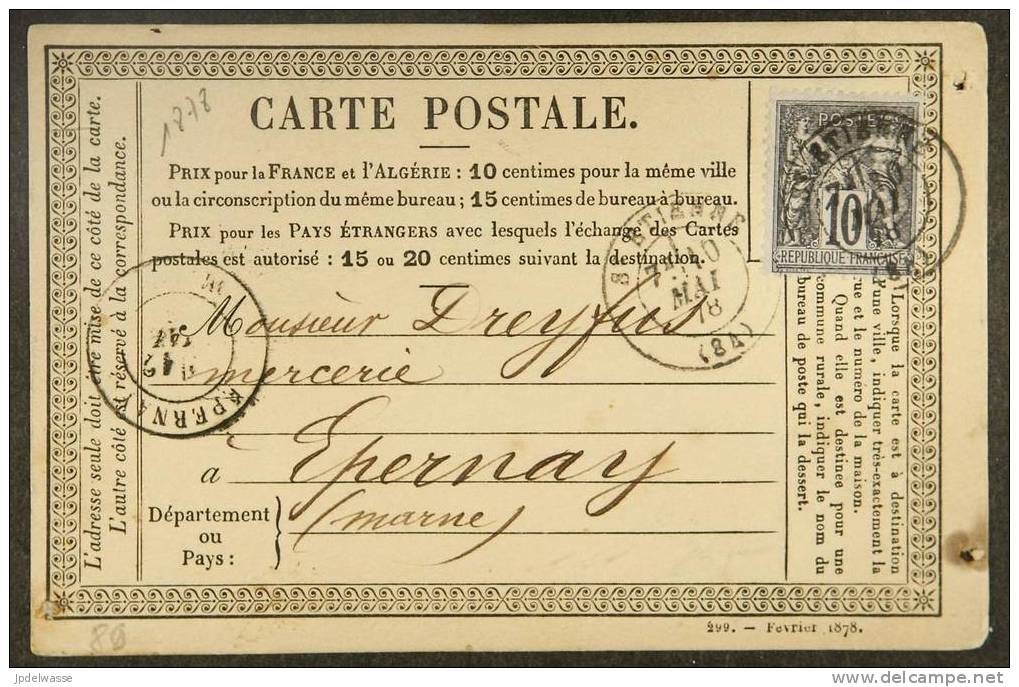 1878
CARTE POSTALE.
PRIX pour la FRANCE et l'ALGÉRIE : 10 centimes pour la même ville
ou la circonscription du même bureau ; 15 centimes de bureau à bureau.
PRIX pour les PAYS ÉTRANGERS avec lesquels l'échange des Cartes
postales est autorisé : 15 ou 20 centimes suivant la destination.
POSTE
10
REPUBLIQUE FRANÇAISE
ETIENNE
MAI
78
EPERNAY
Monsieur Dreyfus
mercerie
à Epernay
Département
ou
Pays :
(marne)
L'adresse seule doit être mise de ce côté de la carte.
L'autre côté est réservé à la correspondance.
Lorsque la carte est à destination
d'une ville, indiquer très-exactement la
rue et le numéro de la maison.
Quand elle est destinée pour une
commune rurale, indiquer le nom du
bureau de poste qui la dessert.
299. — Février 1878.
80
jpdelwasse
delcampe.net